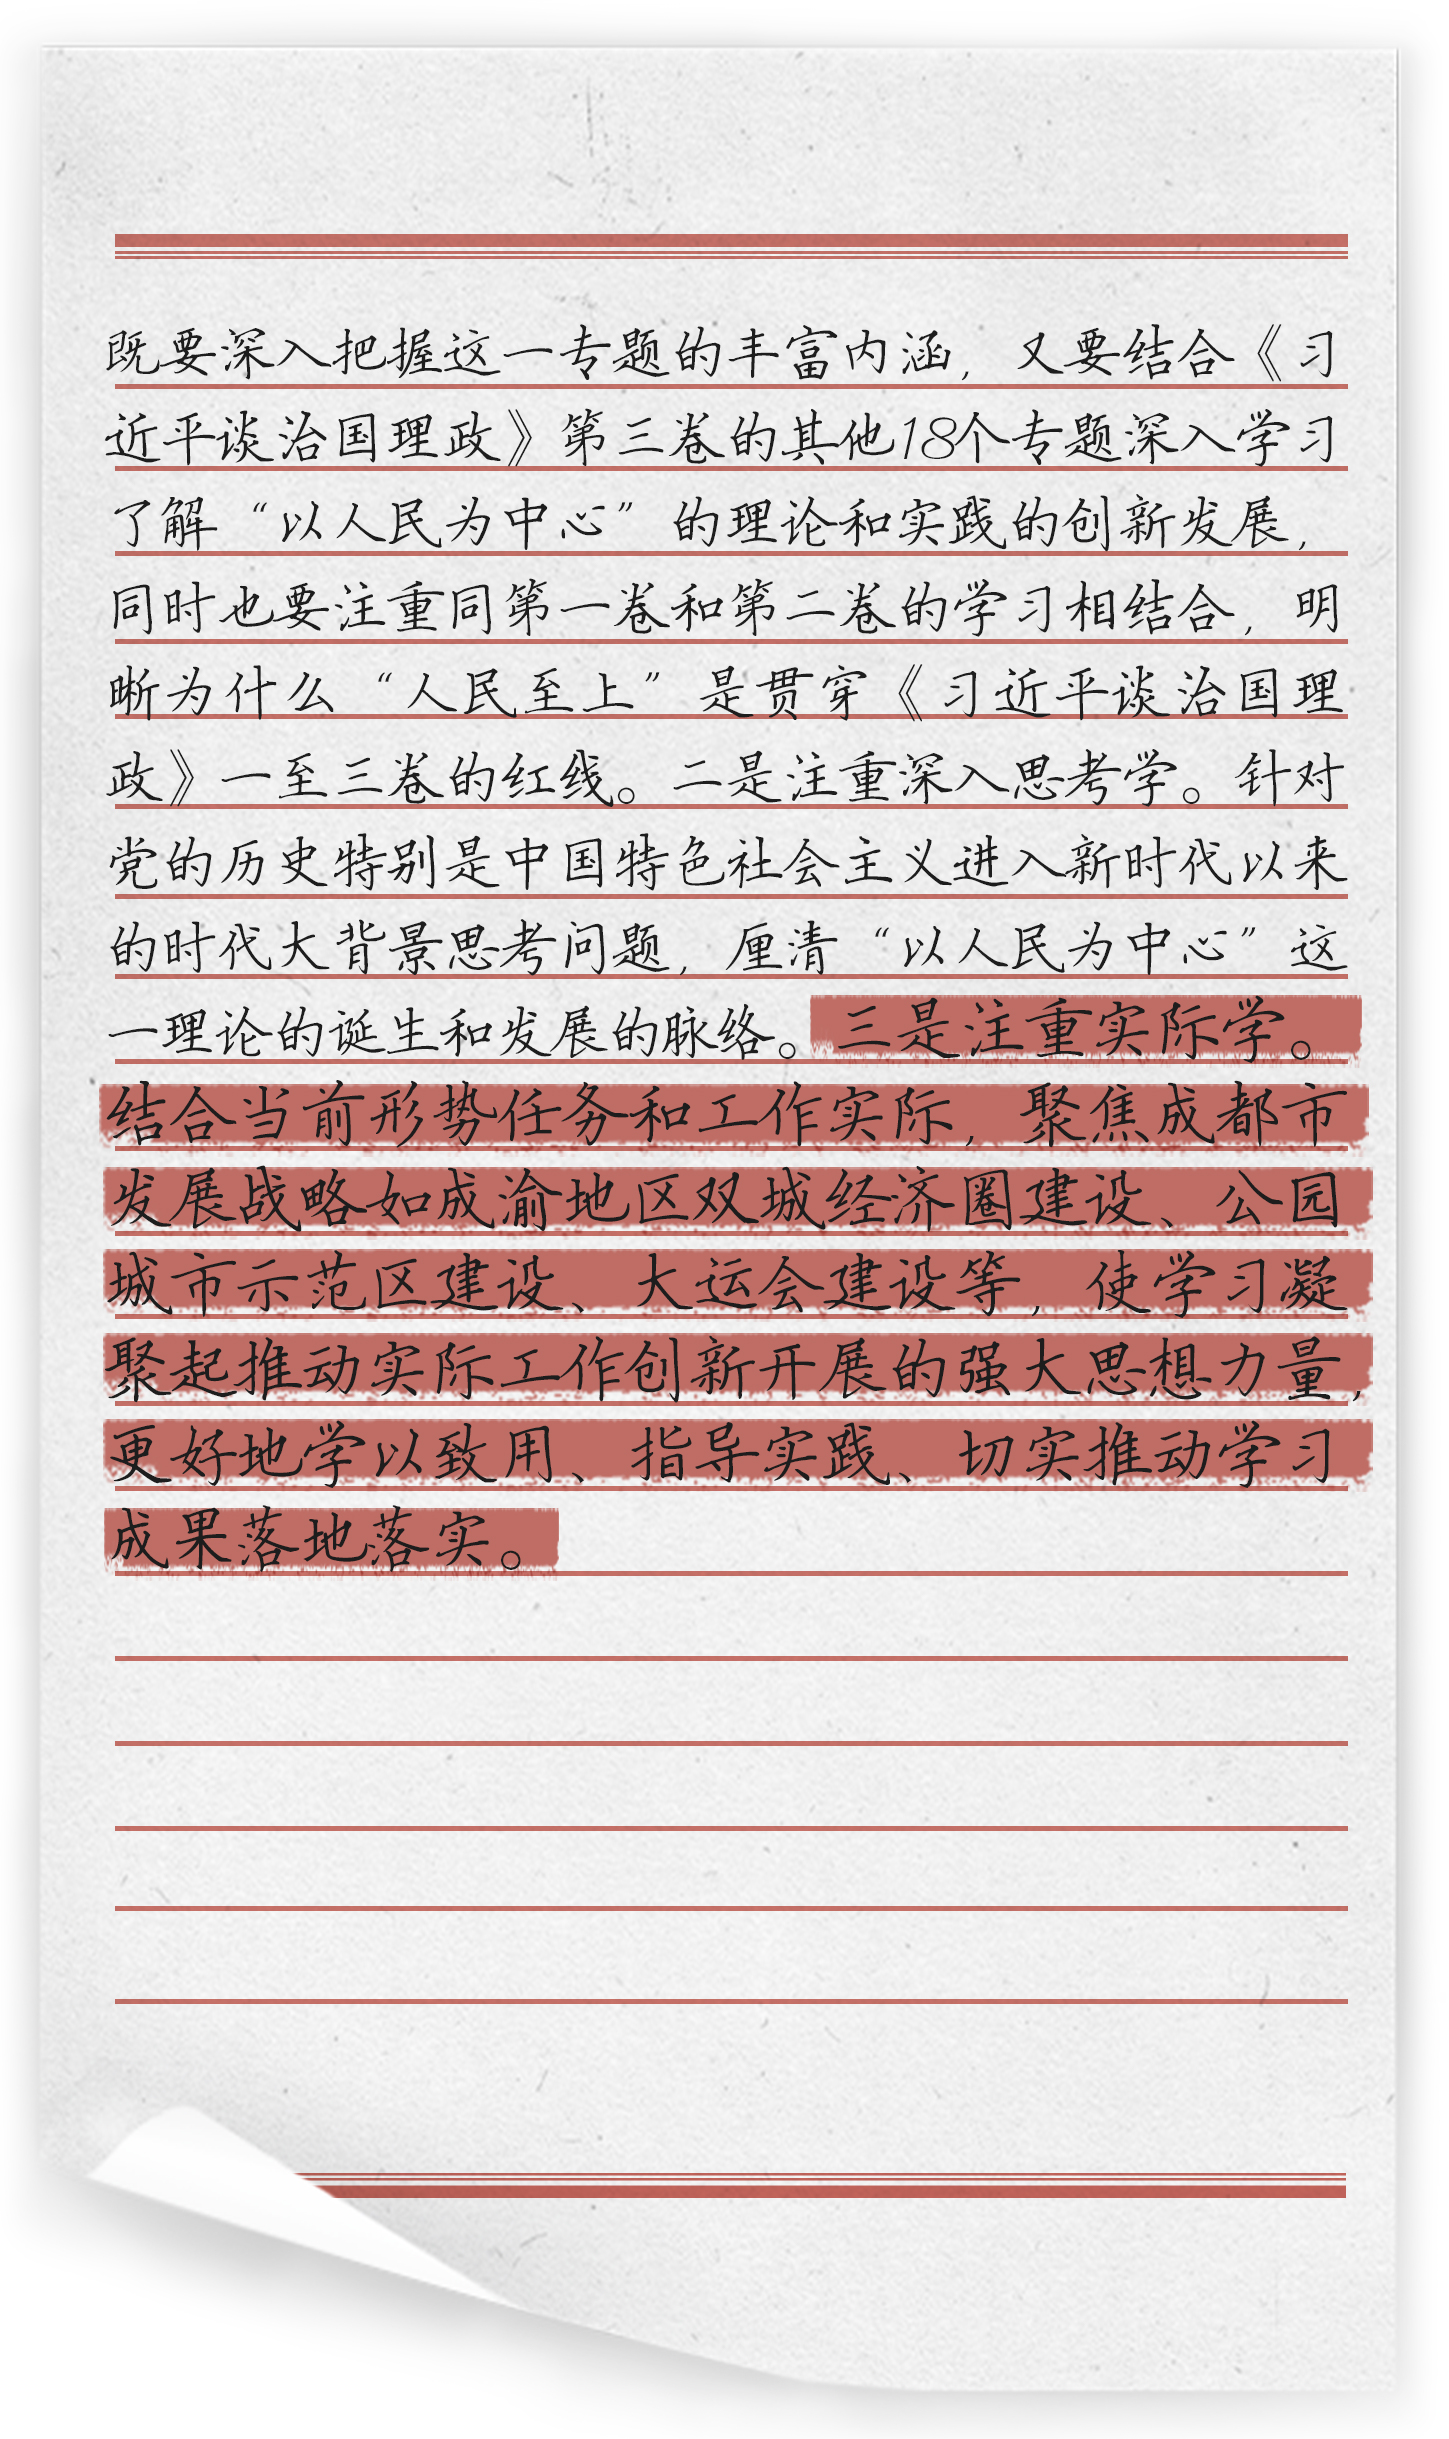 既要深入把握这一专题的丰富内涵，又要结合《习
近平谈治国理政》第三卷的其他18个专题深入学习
了解“以人民为中心”的理论和实践的创新发展，
同时也要注重同第一卷和第二卷的学习相结合，明
晰为什么“人民至上”是贯穿《习近平谈治国理
政》一至三卷的红线。二是注重深入思考学。针对
党的历史特别是中国特色社会主义进入新时代以来
的时代大背景思考问题，厘清“以人民为中心”这
一理论的诞生和发展的脉络。三是注重实际学。
结合当前形势任务和工作实际，聚焦成都市
发展战略如成渝地区双城经济圈建设、公园
城市示范区建设、大运会建设等，使学习凝
聚起推动实际工作创新开展的强大思想力量，
更好地学以致用、指导实践、切实推动学习
成果落地落实。